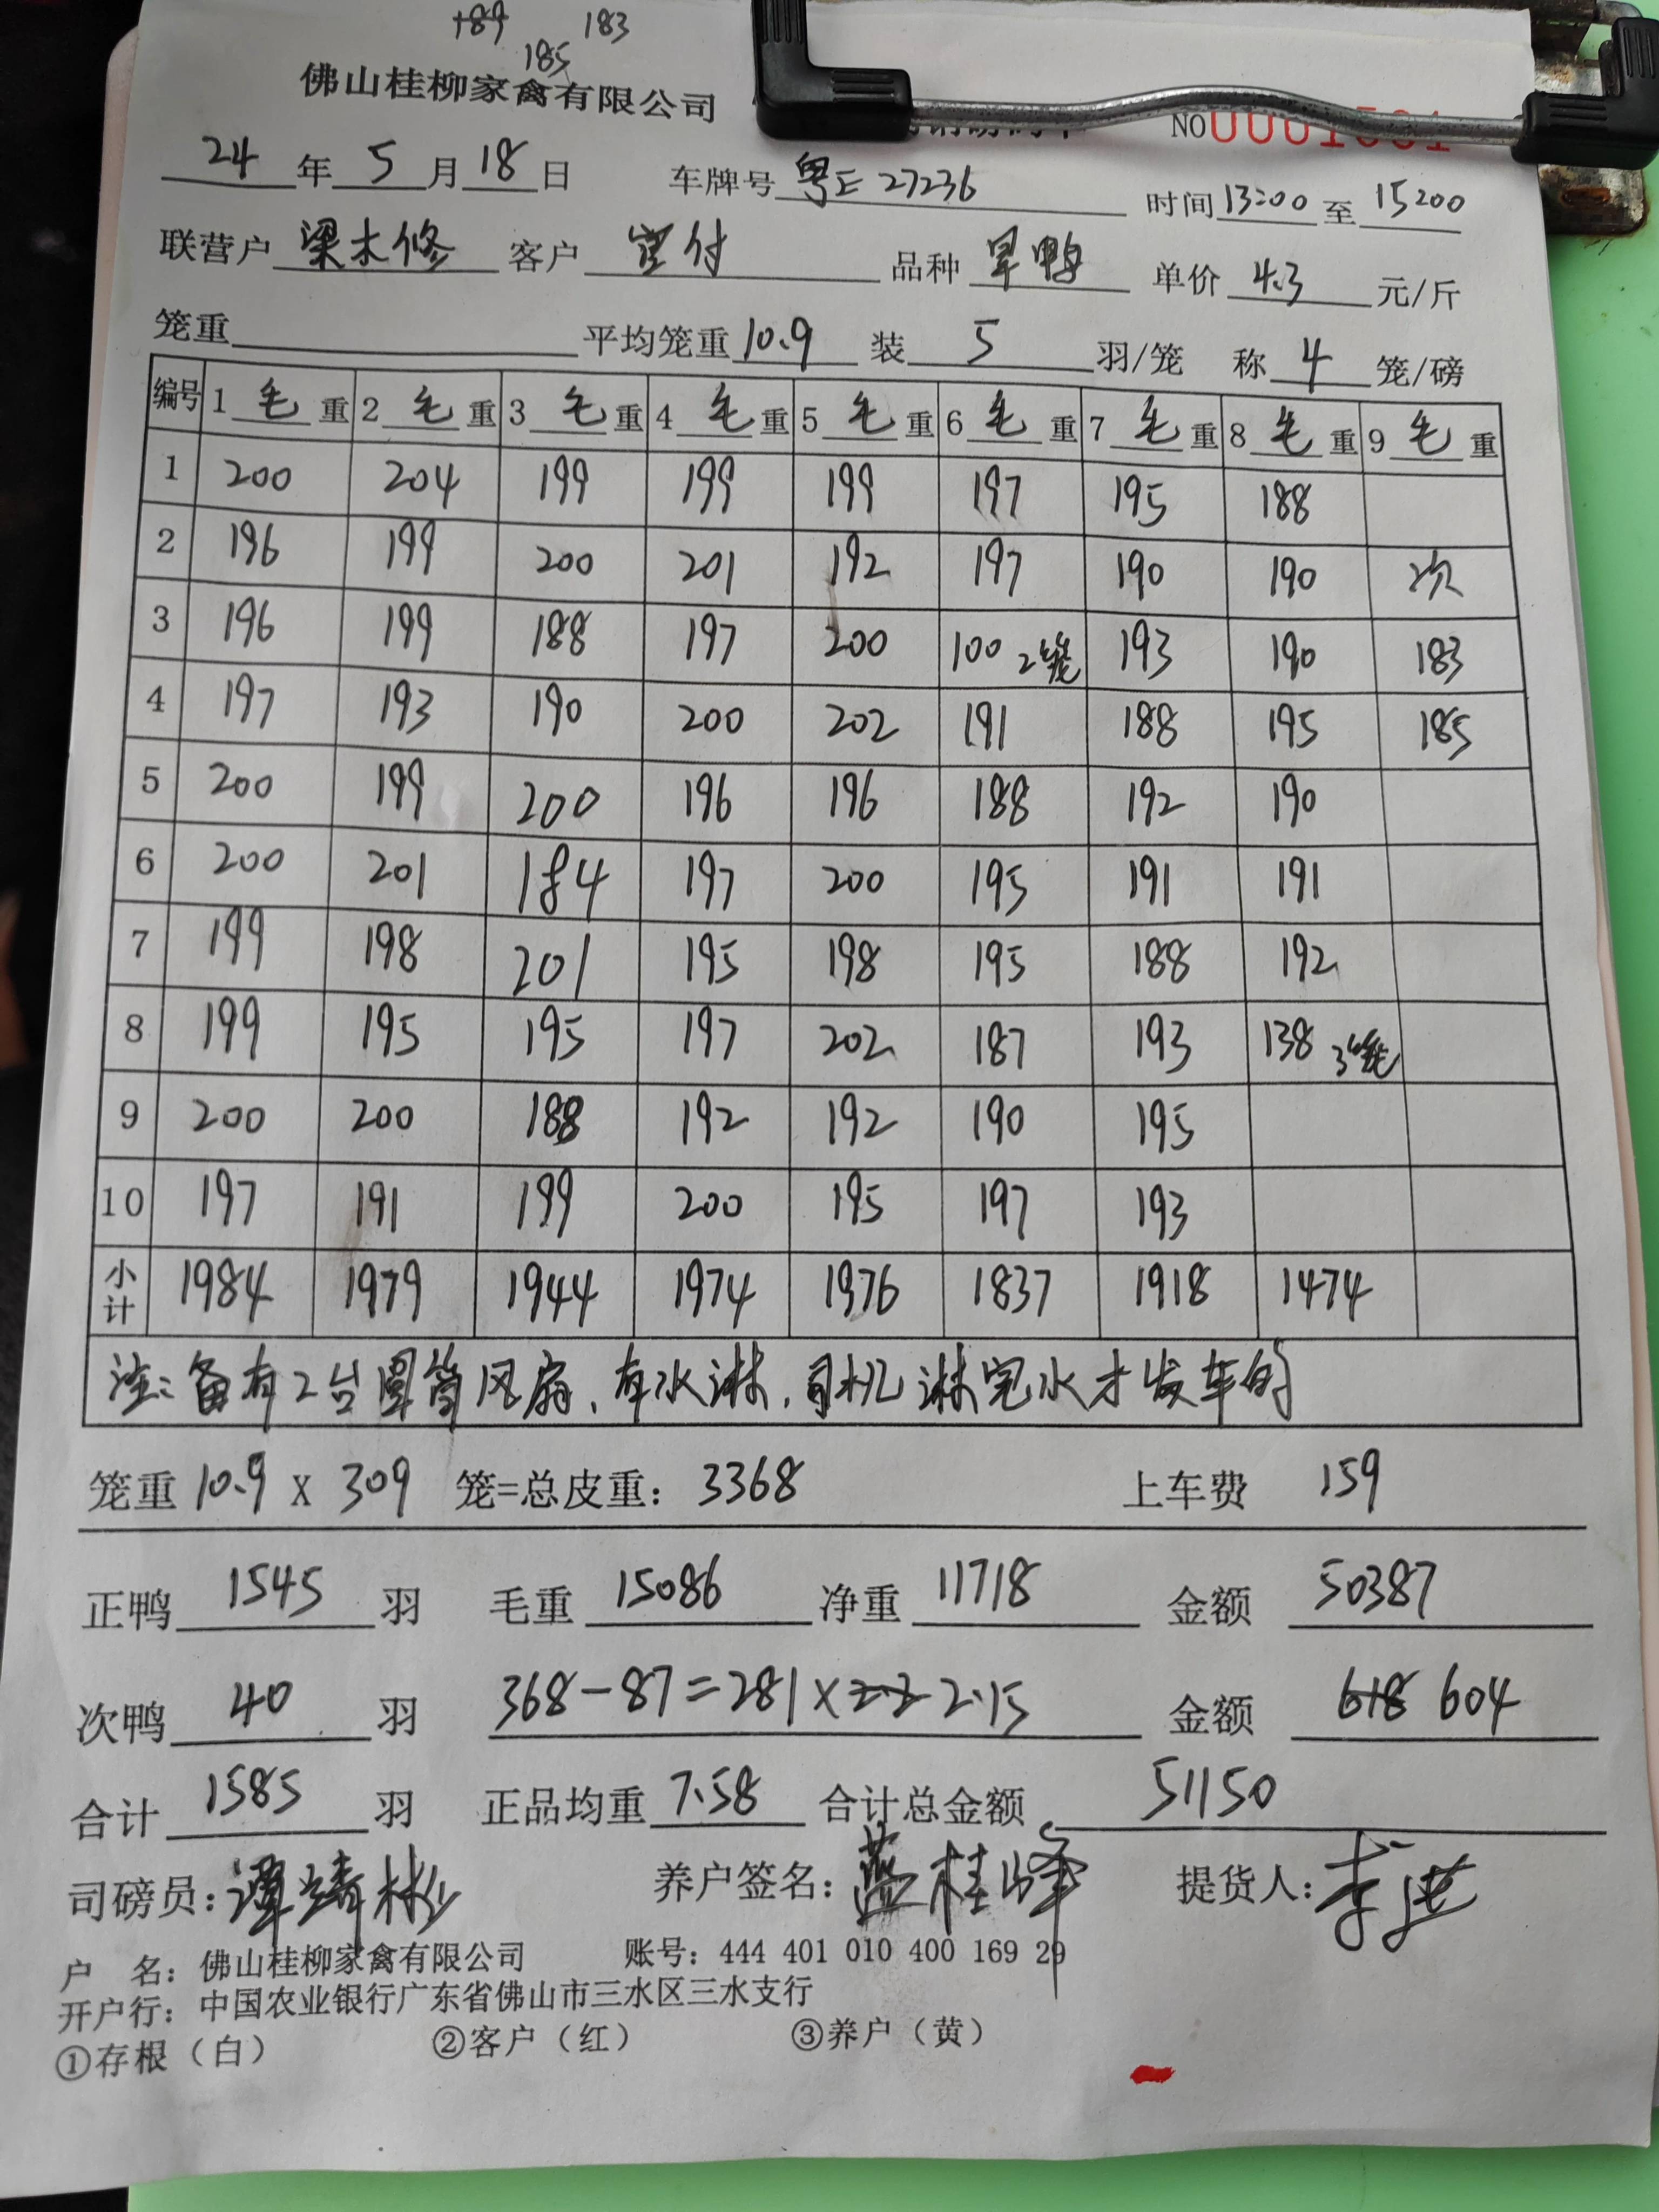 189 185 183
佛山桂柳家禽有限公司 NO
24年5月18日 车牌号 粤E 27236 时间 13:00 至 15:00
联营户 梁木修 客户 宝付 品种 旱鸭 单价 4.3 元/斤
笼重 平均笼重 10.9 装 5 羽/笼 称 4 笼/磅
编号 1 毛 重 2 毛 重 3 毛 重 4 毛 重 5 毛 重 6 毛 重 7 毛 重 8 毛 重 9 毛 重
1 200 204 199 199 199 197 195 188
2 196 199 200 201 192 197 190 190 次
3 196 199 188 197 200 100 2笼 193 190 183
4 197 193 190 200 202 191 188 195 185
5 200 199 200 196 196 188 192 190
6 200 201 184 197 200 195 191 191
7 199 198 201 195 198 195 188 192
8 199 195 195 197 202 187 193 138 3笼
9 200 200 188 192 192 190 195
10 197 191 199 200 195 197 193
小计 1984 1979 1944 1974 1976 1837 1918 1474
注:备有2台圆筒风扇、有水淋,司机淋完水才发车的
笼重 10.9 X 309 笼=总皮重: 3368 上车费 159
正鸭 1545 羽 毛重 15086 净重 11718 金额 50387
次鸭 40 羽 368-87=281×2.2 2.15 金额 618 604
合计 1585 羽 正品均重 7.58 合计总金额 51150
司磅员:谭靖彬 养户签名:蓝桂峰 提货人:李
户 名:佛山桂柳家禽有限公司 账号:444 401 010 400 169 29
开户行:中国农业银行广东省佛山市三水区三水支行
①存根(白) ②客户(红) ③养户(黄)